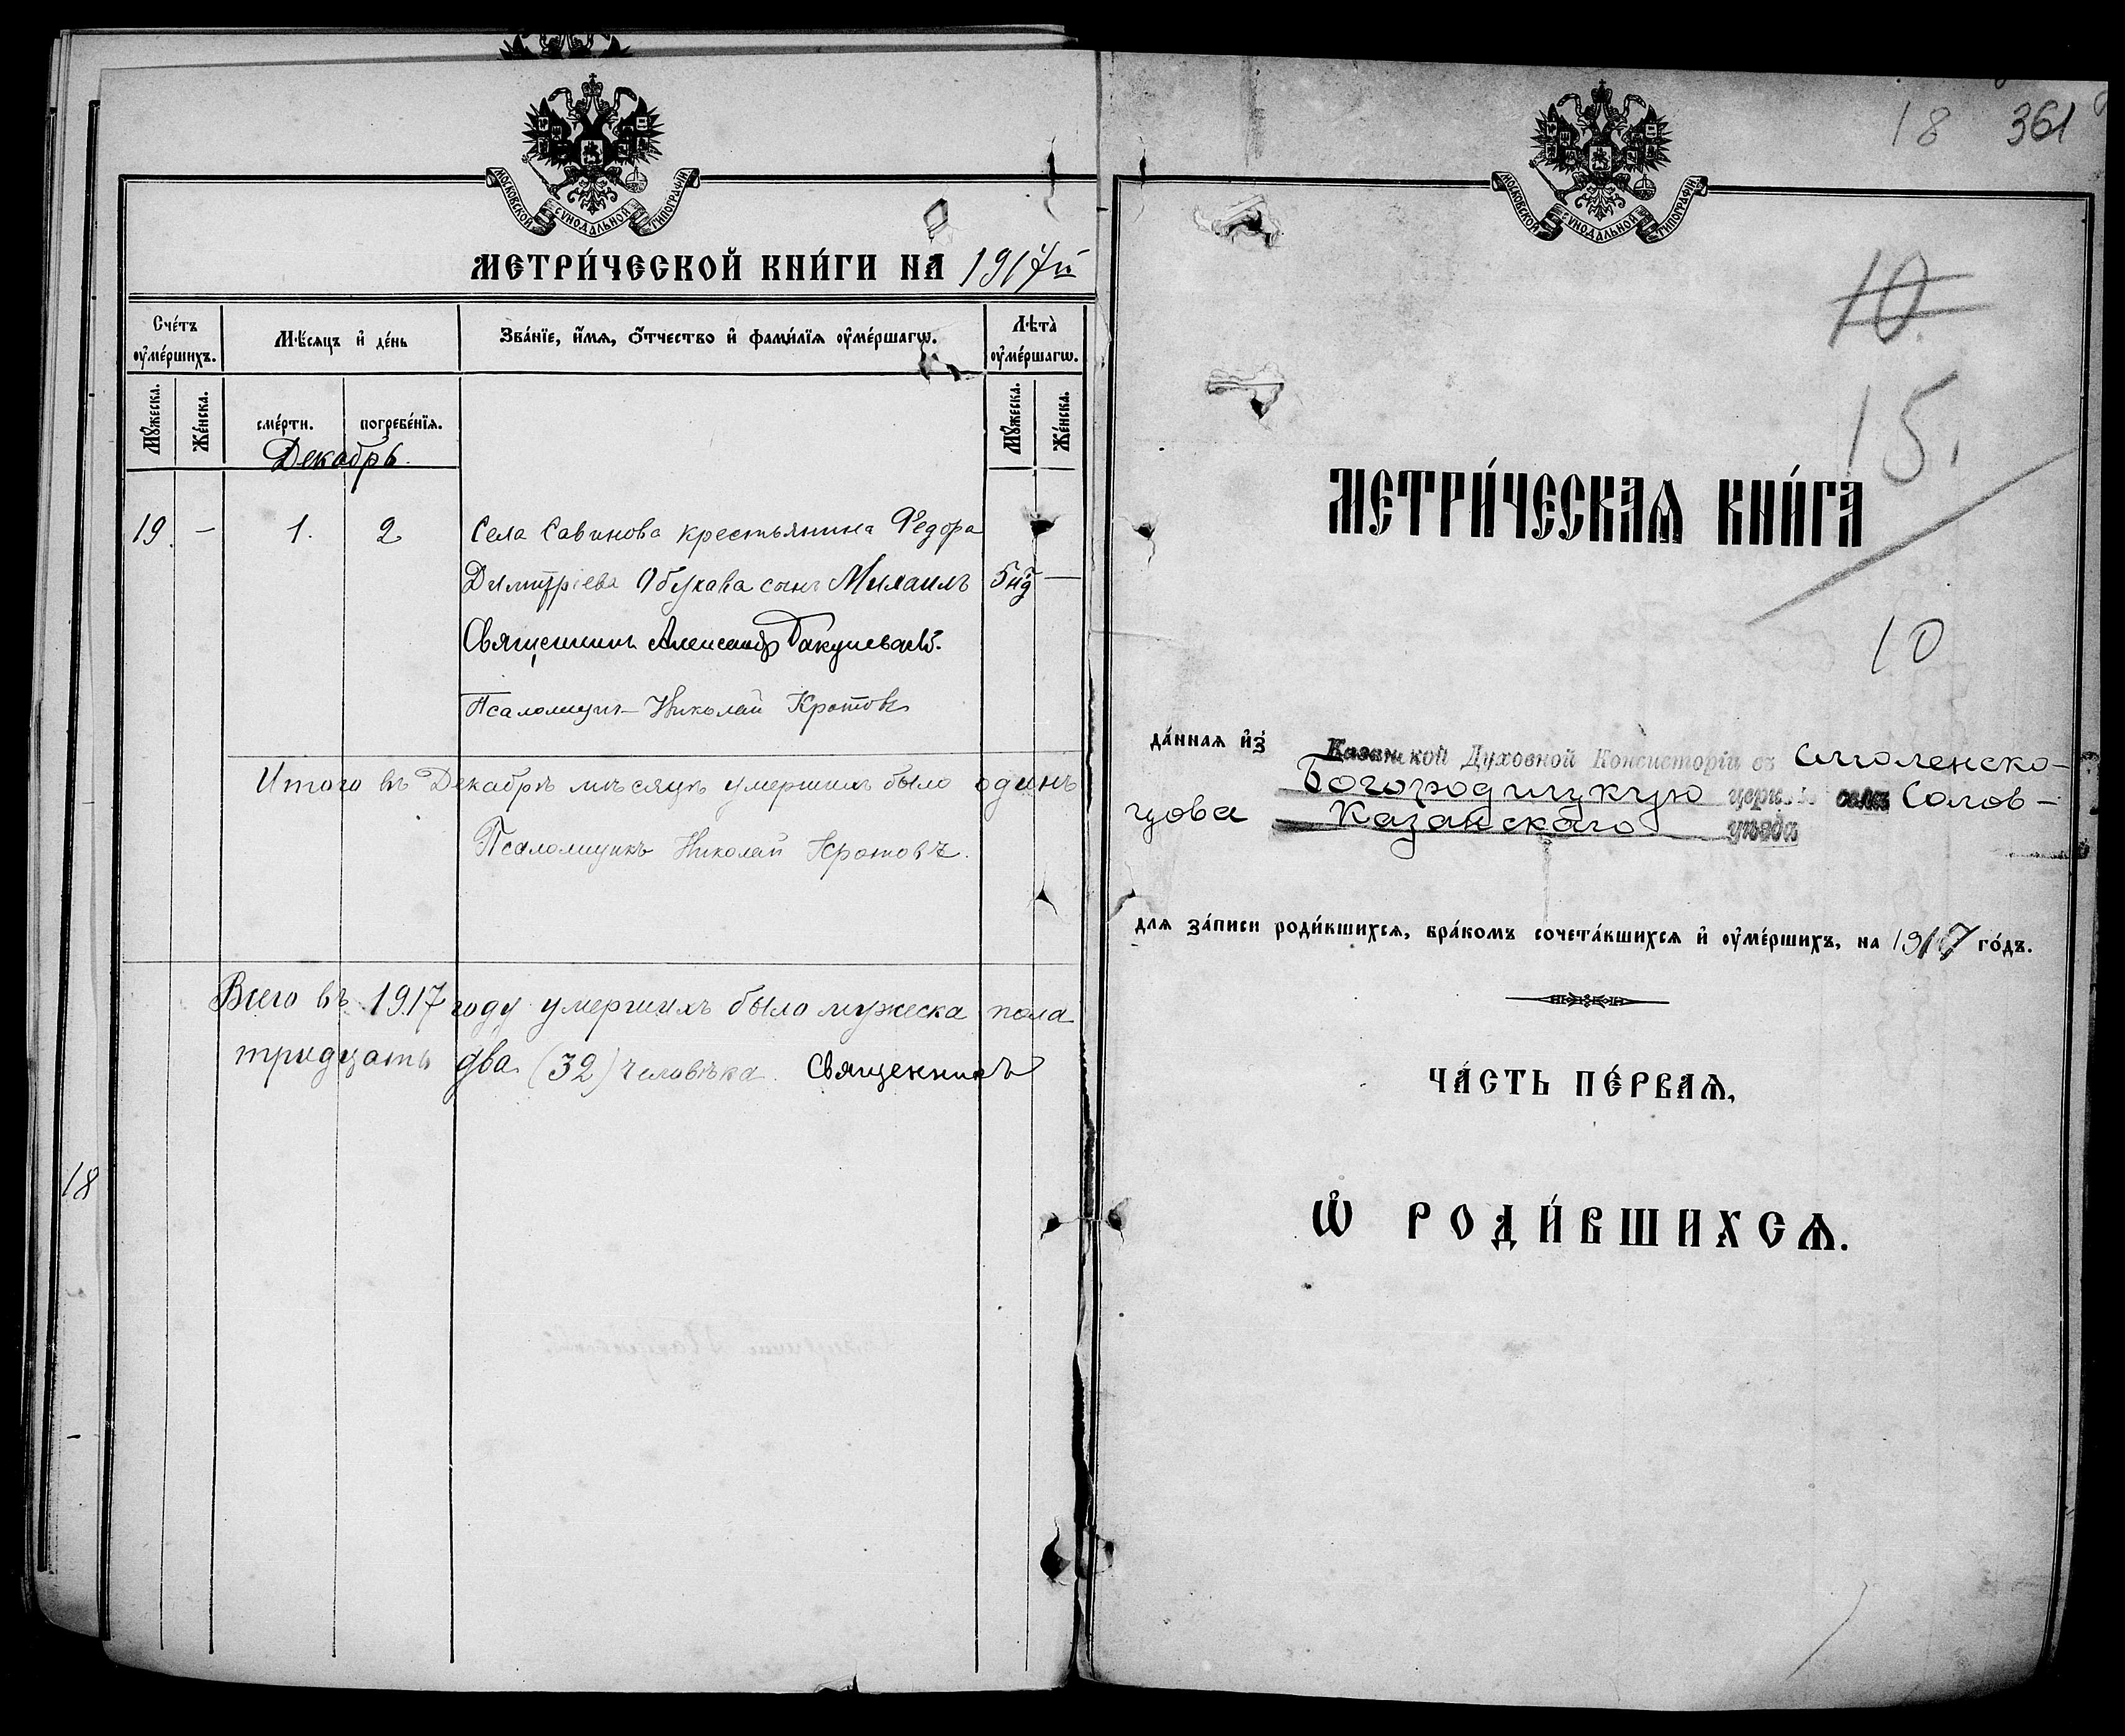 МОСКОВСКОЙ СѴНОДАЛЬНОЙ ТИПОГРАФІИ
МЕТРИ́ЧЕСКОЙ КНИ́ГИ НА 1917й
Сче́тъ оу҆ме́ршихъ.
Мѣ́сяцъ и҆ де́нь
Зва́нїе, и҆́мя, ѻ҆́тчество и҆ фами́лїя оу҆ме́ршагѡ.
Лѣта̀ оу҆ме́ршагѡ.
Мꙋ́жеска.
Же́нска.
сме́рти.
погребе́нїя.
Мꙋ́жеска.
Же́нска.
Декабрь.
19. — 1. 2 Села Савинова крестьянина Ѳедора
Димитріева Обухова сынъ Михаилъ 5 нд —
Священникъ Александр
Псаломщикъ Николай Кротовъ
Итого въ Декабрѣ мѣсяцѣ умершихъ было одинъ
Псаломщикъ Николай Кротовъ.
Всего въ 1917 году умершихъ было мужеска пола
тридцать два (32) человѣка. Священникъ
18
18 361
МОСКОВСКОЙ СѴНОДАЛЬНОЙ ТИПОГРАФІИ
10.
15.
МЕТРИ́ЧЕСКАѦ КНИ́ГА
10
да́нная и҆з̾ Казанской Духовной Консисторіи въ Смоленско-
Богородицкую церковь села Солов-
цова Казанского уѣзда
для за́писи роди́вшихся, бра́комъ сочета́вшихся и҆ оу҆ме́ршихъ, на 1917 го́дъ.
ЧА́СТЬ ПЕ́РВАѦ,
Ѡ҆ РОДИ́ВШИХСѦ.